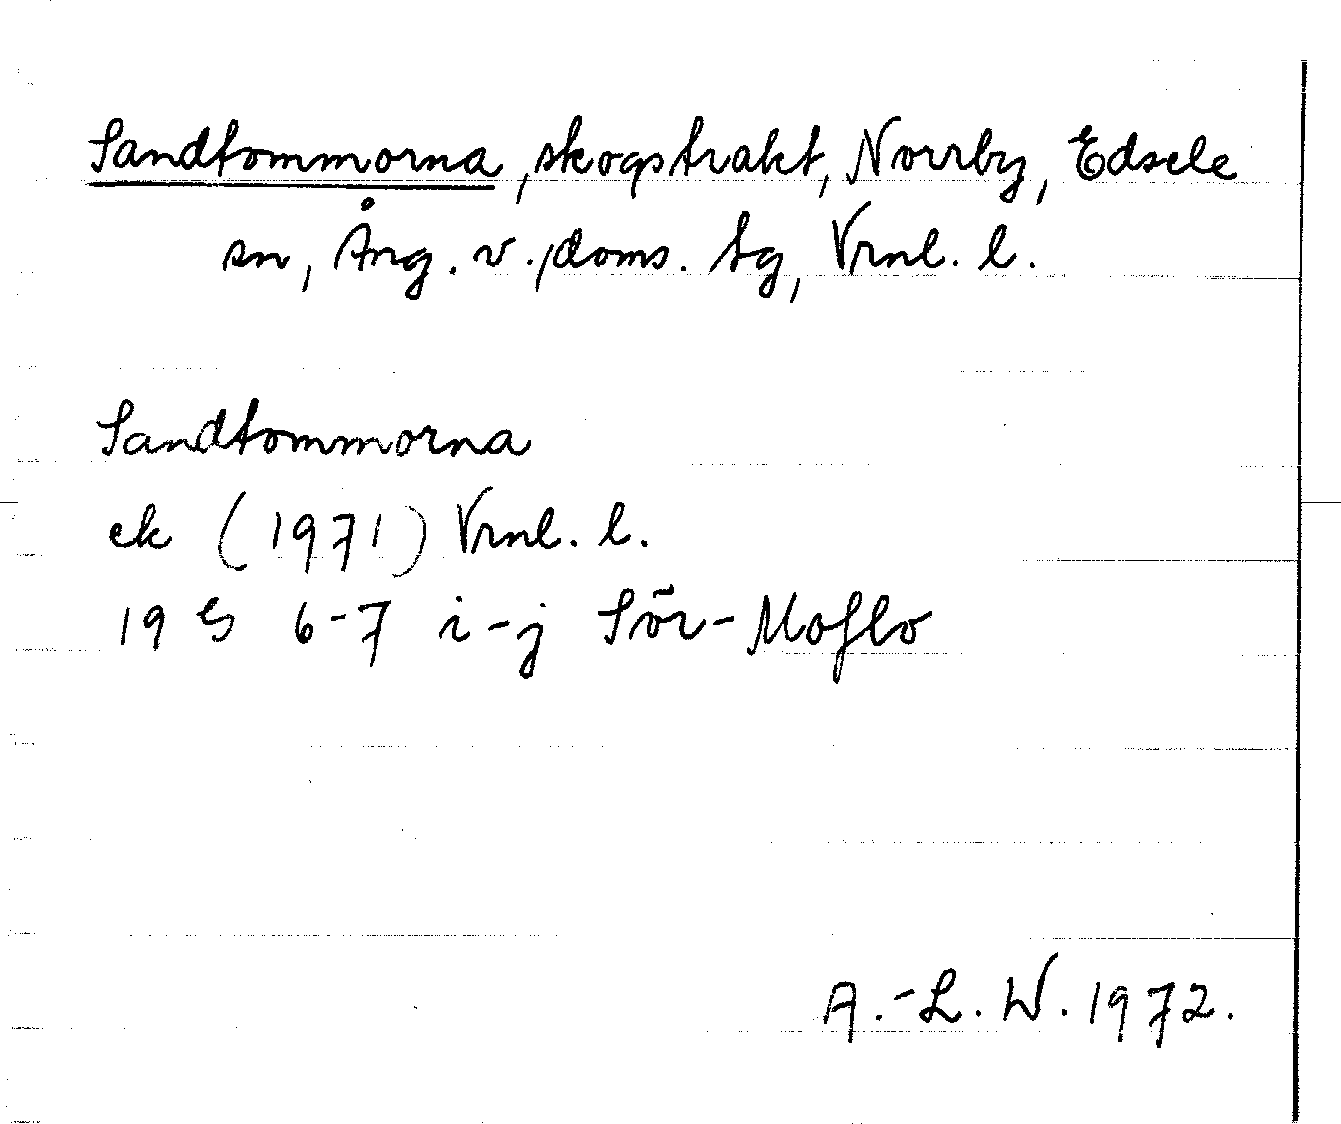 Sandtommorna, skogstrakt, Norrby, Edsele
sn, Ång. v. doms. tg, Vrnl. l.
Sandtommorna
ek (1971) Vrnl. l.
19 G 6-7 i-j Sör-Moflo
A.-L. W. 1972.